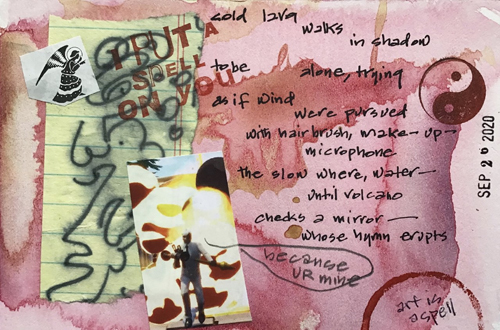 I PUT A
SPELL
ON YOU
cold lava
walks
in shadow
to be
alone, trying
as if wind
were pursued
with hairbrush, make-up-
microphone
the slow where, water-
until volcano
checks a mirror-
whose hymn erupts
because
UR mine
SEP 2 6 2020
art is
a spell